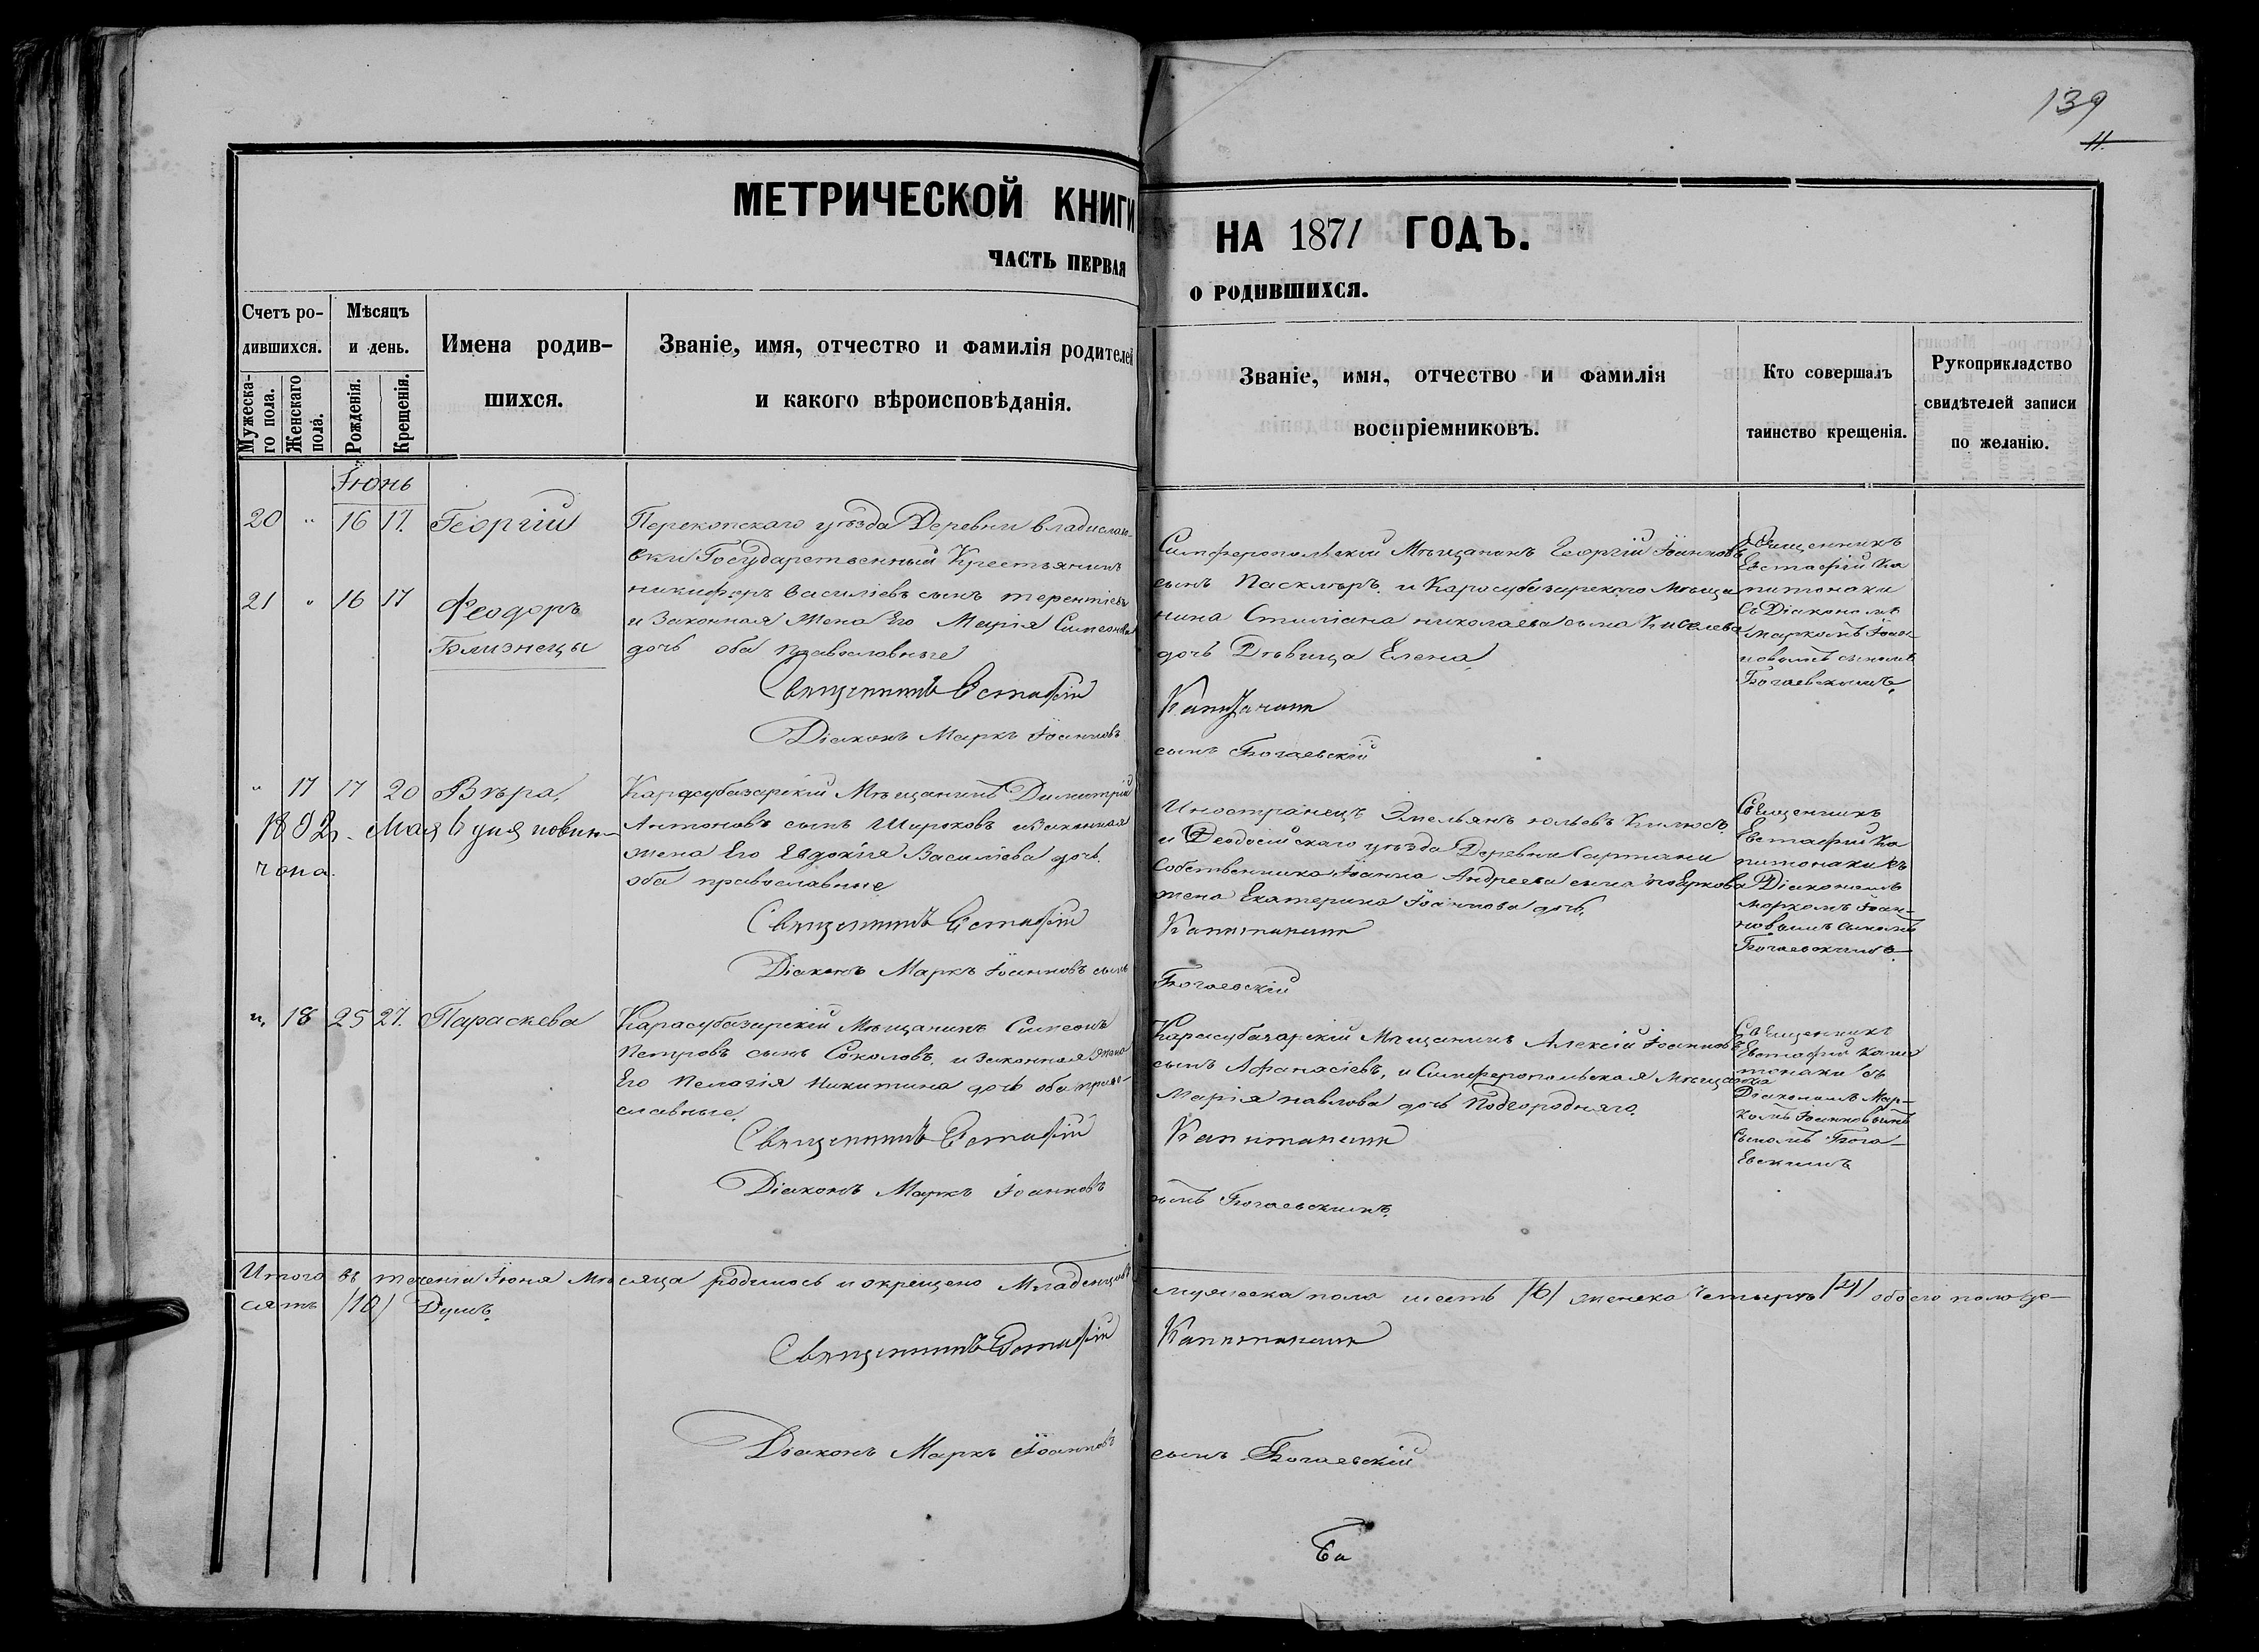 139
11.
МЕТРИЧЕСКОЙ КНИГИ НА 1871 ГОДЪ.
ЧАСТЬ ПЕРВАЯ О РОДИВШИХСЯ.
Счетъ ро-
дившихся.
Мужеска-
го пола.
Женскаго
пола.
Мѣсяцъ
и день.
Рожденія.
Крещенія.
Имена родив-
шихся.
Званіе, имя, отчество и фамилія родителей
и какого вѣроисповѣданія.
Званіе, имя, отчество и фамилія
воспріемниковъ.
Кто совершалъ
таинство крещенія.
Рукоприкладство
свидѣтелей записи
по желанію.
Іюнь
20 " 16 17. Георгій
21 " 16 17 Феодоръ
Близнецы
Перекопскаго уѣзда Деревни владислав-
вки Государственный Крестьянинъ
никифоръ василіевъ сынъ терентіевъ
и Законная Жена Его Марія Симеонова
дочь оба православные
Священникъ Евстафій Капитанаки
Діаконъ Маркъ Іоанновъ сынъ Богаевскій
Симферопольскій Мѣщанинъ Георгій Іоанновъ
сынъ Пасхлѣръ. и Карасубазарскаго Мѣща
нина Стиліана николаева сына Киселева
дочь Дѣвица Елена.
Священникъ
Евстафій Ка
питонаки
съ Діакономъ
маркомъ Іоан-
новымъ сыномъ
Богаевскимъ.
" 17 17 20 Вѣра.
1882г. Мая 6 дня повин-
чона.
Карасубазарскій Мѣщанинъ Димитрій
Антоновъ сынъ Широковъ и Законная
жена Его Евдокія Василіева дочь.
оба православные
Священникъ Евстафій Капитанаки
Діаконъ Маркъ Іоанновъ сынъ Богаевскій
Иностранецъ Эмельянъ юльевъ Килюсъ.
и Феодосійскаго уѣзда Деревни Сартани
Собственника Іоанна Андреева сына
жена Екатерина Іоаннова дочь.
Священникъ
Евстафій Ка
питонаки съ
Діакономъ
Маркомъ Іоан-
новымъ сыномъ
Богаевскимъ.
". 18 25 27. Параскева
Карасубазарскій Мѣщанинъ Симеонъ
Петровъ сынъ Соколовъ. и законная жена
Его Пелагія Никитина дочь оба право-
славные.
Священникъ Евстафій Капитанаки
Діаконъ Маркъ Іоанновъ сынъ Богаевскимъ.
Карасубазарскій Мѣщанинъ Алексій Іоанновъ
сынъ Афанасіевъ, и Симферопольская Мѣщанка
Марія павлова дочь Подгородняго.
Священникъ
Евстафій Капи
тонаки съ
Діакономъ Мар-
комъ Іоанновымъ
Сыномъ Бога-
Евскимъ
Итого въ теченіи Іюня Мѣсяца родилось и окрещено Младенцовъ мужеска пола шесть /6/ женска Четыре /4/ обоего пола де-
сять /10/ Душъ.
Священникъ Евстафій Капитанаки
Діаконъ Маркъ Іоанновъ сынъ Богаевскій